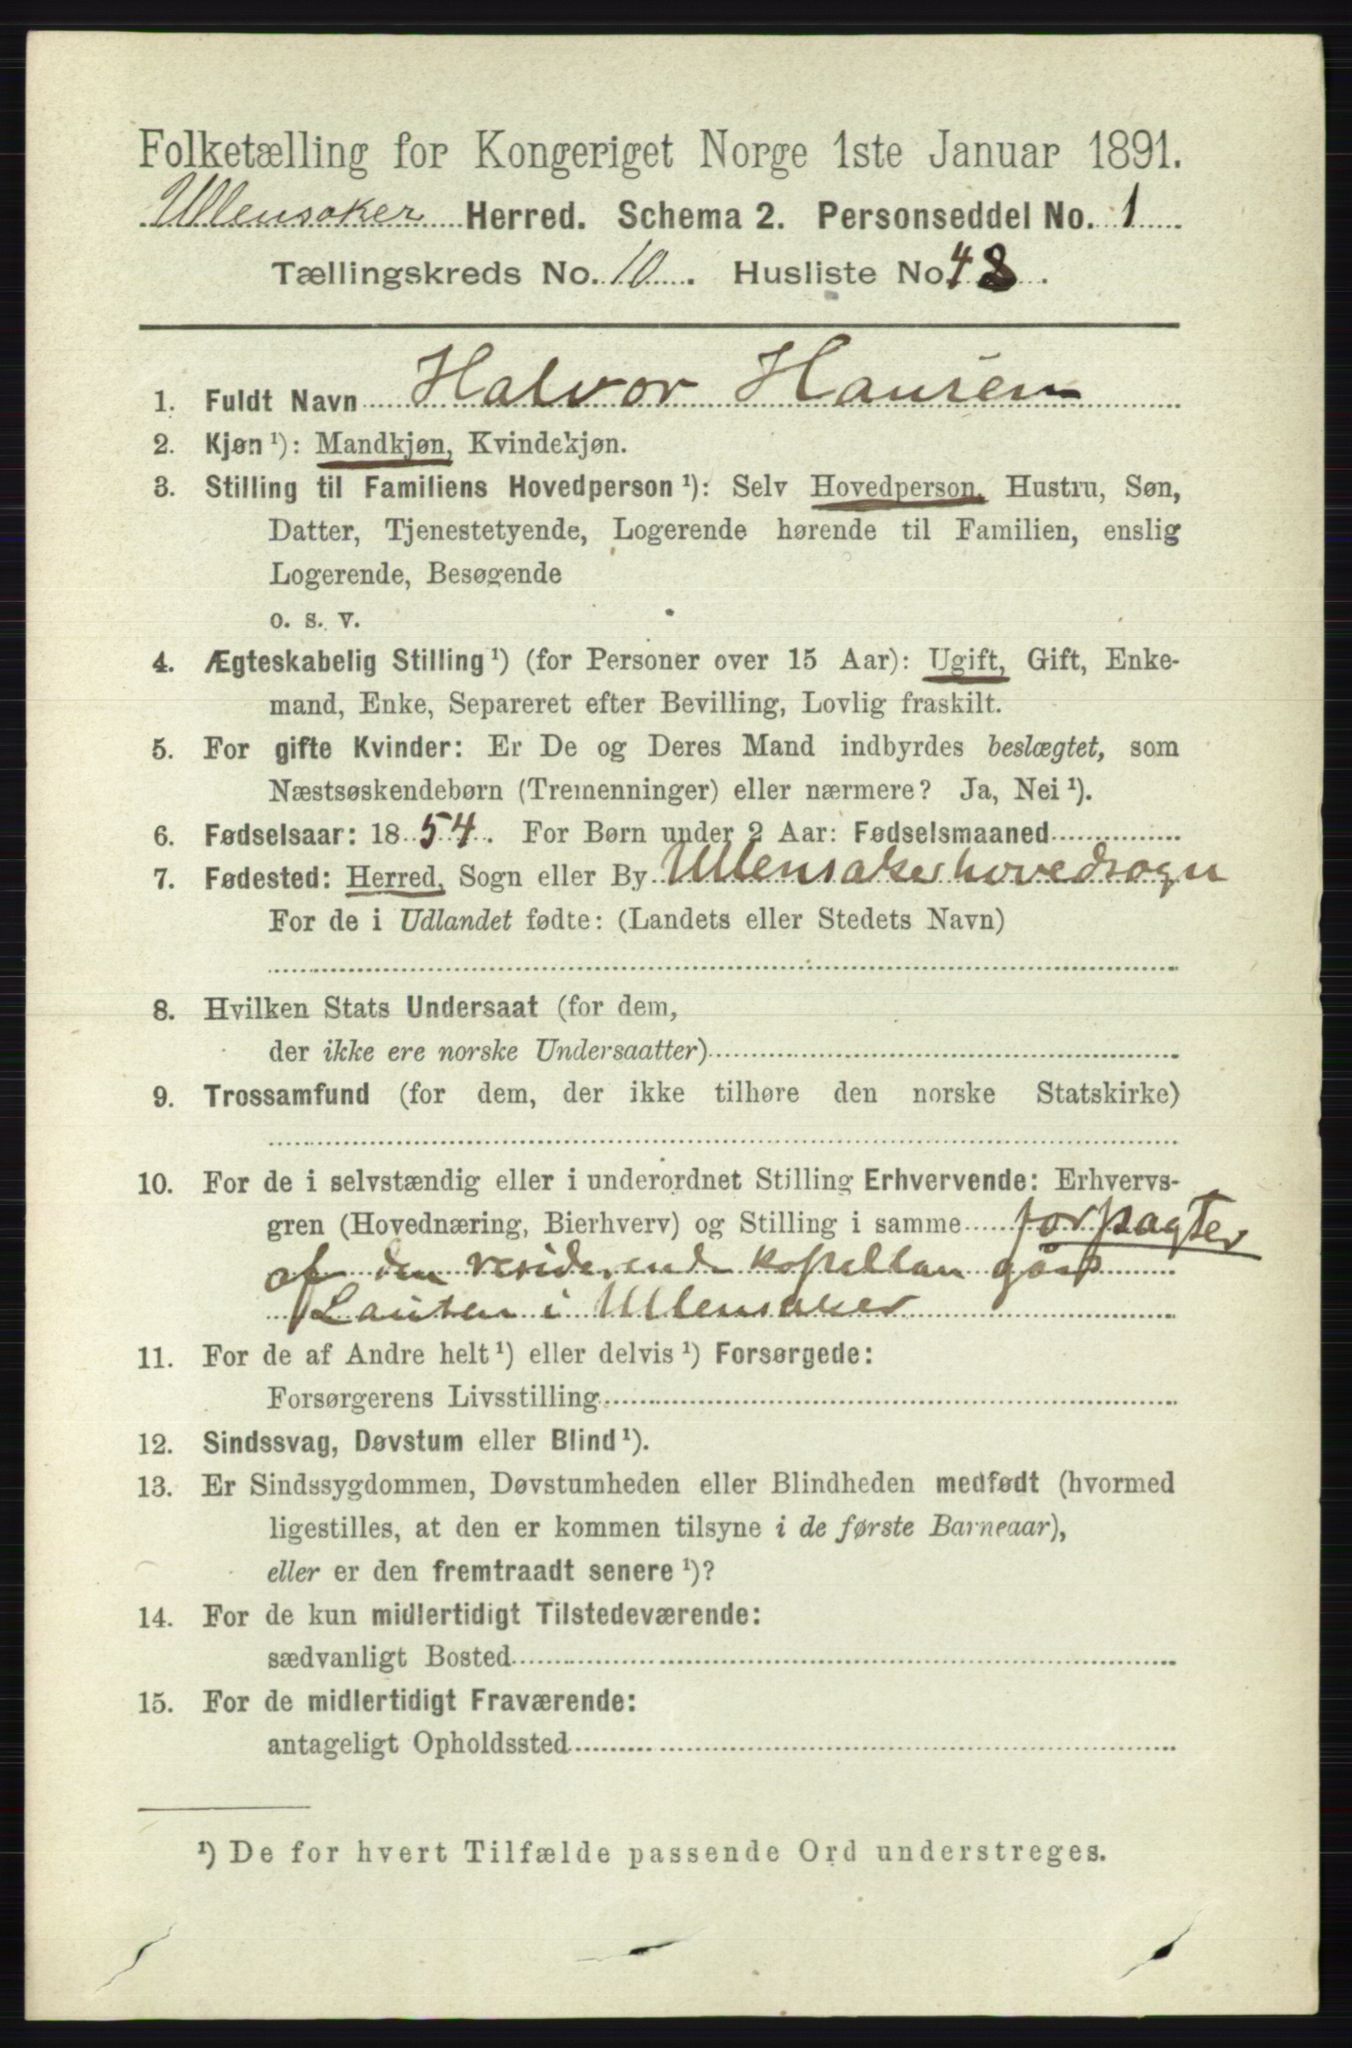 Folketælling for Kongeriget Norge 1ste Januar 1891.
Ullensaker Herred. Schema 2. Personseddel No. 1
Tællingskreds No. 10. Husliste No 48.
1. Fuldt Navn Halvor Hansen
2. Kjøn ¹): Mandkjøn, Kvindekjøn.
3. Stilling til Familiens Hovedperson ¹): Selv Hovedperson, Hustru, Søn,
Datter, Tjenestetyende, Logerende hørende til Familien, enslig
Logerende, Besøgende
o. s. v.
4. Ægteskabelig Stilling ¹) (for Personer over 15 Aar): Ugift, Gift, Enke-
mand, Enke, Separeret efter Bevilling, Lovlig fraskilt.
5. For gifte Kvinder: Er De og Deres Mand indbyrdes beslægtet, som
Næstsøskendebørn (Tremenninger) eller nærmere? Ja, Nei ¹).
6. Fødselsaar: 1854. For Børn under 2 Aar: Fødselsmaaned
7. Fødested: Herred, Sogn eller By Ullensaker hovedsogn
For de i Udlandet fødte: (Landets eller Stedets Navn)
8. Hvilken Stats Undersaat (for dem,
der ikke ere norske Undersaatter)
9. Trossamfund (for dem, der ikke tilhøre den norske Statskirke)
10. For de i selvstændig eller i underordnet Stilling Erhvervende: Erhvervs-
gren (Hovednæring, Bierhverv) og Stilling i samme forpagter
af den residerende kapellan gård
i Ullensaker
11. For de af Andre helt ¹) eller delvis ¹) Forsørgede:
Forsørgerens Livsstilling
12. Sindssvag, Døvstum eller Blind ¹).
13. Er Sindssygdommen, Døvstumheden eller Blindheden medfødt (hvormed
ligestilles, at den er kommen tilsyne i de første Barneaar),
eller er den fremtraadt senere ¹)?
14. For de kun midlertidigt Tilstedeværende:
sædvanligt Bosted
15. For de midlertidigt Fraværende:
antageligt Opholdssted
¹) De for hvert Tilfælde passende Ord understreges.